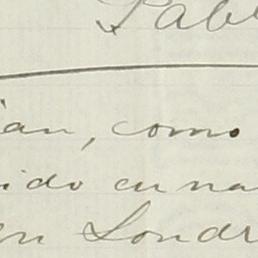 Pabl
ian, como
ido en na
en Londr